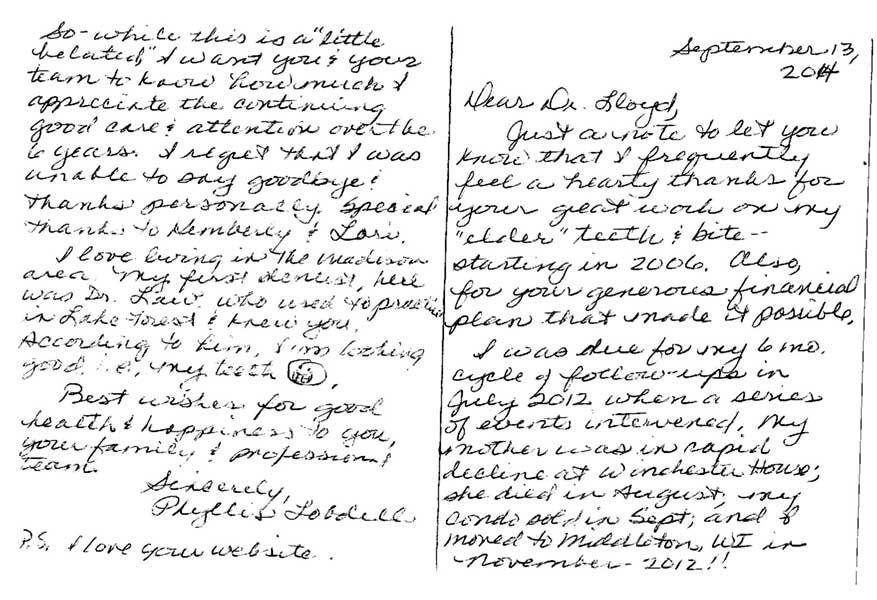 September 13,
2014
Dear Dr. Lloyd,
Just a note to let you
know that I frequently
feel a hearty thanks for
your great work on my
"elder" teeth & bite--
starting in 2006. Also,
for your generous financial
plan that made it possible.
I was due for my 6 mo.
cycle of follow-ups in
July 2012 when a series
of events intervened. My
mother was in rapid
decline at Winchester House;
she died in August; my
condo sold in Sept; and I
moved to Middleton, WI in
November - 2012!!
So - while this is a "little
belated" I want you & your
team to know how much I
appreciate the continuing
good care & attention over the
6 years. I regret that I was
unable to say goodbye &
thanks personally. Special
thanks to Kemberly & Lori.
I love living in the Madison
area. My first dentist, here
was Dr. Law who used to practice
in Lake Forest & knew you.
According to him, I'm looking
good i.e., my teeth
Best wishes for good
health & happiness to you,
your family & professional
team.
Sincerely,
Phyllis Lobdell
P.S. I love your website.